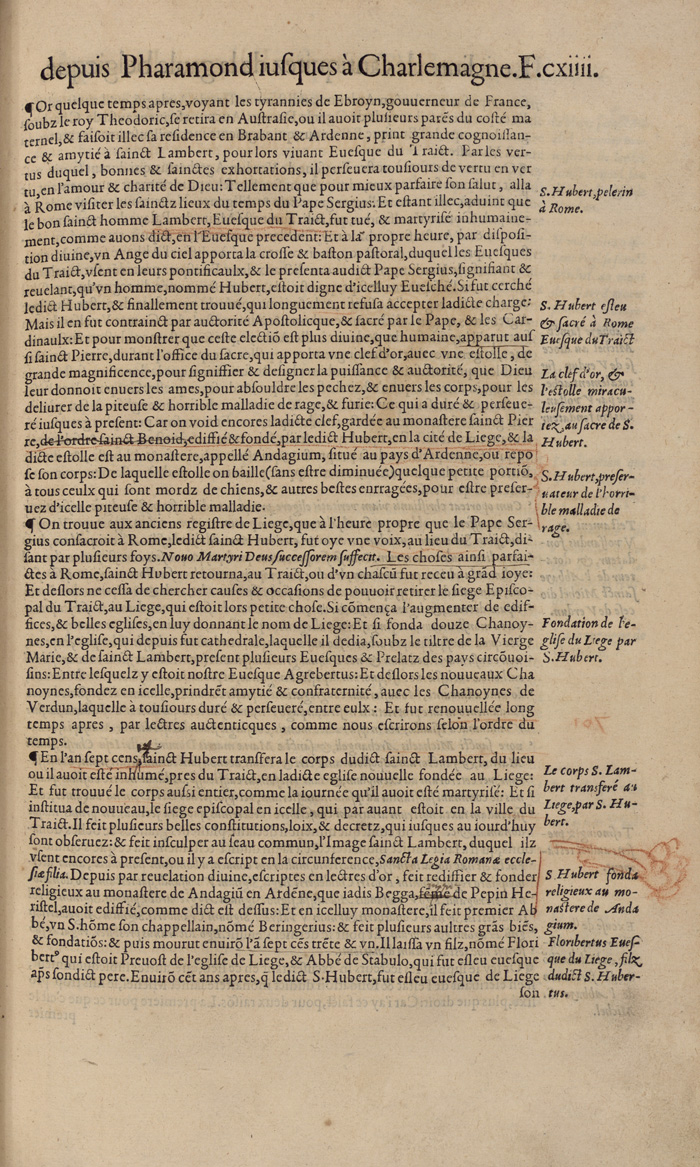 depuis Pharamond iuſques à Charlemagne.F.cxiiii.
¶Or quelque temps apres,voyant les tyrannies de Ebroyn,gouuerneur de France,
ſoubz le roy Theodoric,ſe retira en Auſtraſie,ou il auoit pluſieurs parẽs du coſté ma
ternel,& faiſoit illec ſa reſidence en Brabant & Ardenne, print grande cognoiſſan-
ce & amytié à ſainct Lambert, pour lors viuant Eueſque du Traict. Par les ver-
tus duquel, bonnes & ſainctes exhortations, il perſeuera touſiours de vertu en ver
tu,en l'amour & charité de Dieu: Tellement que pour mieux parfaire ſon ſalut, alla
à Rome viſiter les ſainctz lieux du temps du Pape Sergius: Et eſtant illec,aduint que
le bon ſainct homme Lambert,Eueſque du Traict,fut tué, & martyriſé inhumaine-
ment,comme auons dict,en l'Eueſque precedent: Et à la propre heure, par diſpoſi-
tion diuine,vn Ange du ciel apporta la croſſe & baſton paſtoral,duquel les Eueſques
du Traict,vſent en leurs pontificaulx,& le preſenta audict Pape Sergius,ſignifiant &
reuelant,qu'vn homme,nommé Hubert,eſtoit digne d'icelluy Eueſché.Si fut cerché
ledict Hubert,& finallement trouué,qui longuement refuſa accepter ladicte charge:
Mais il en fut contrainct par auctorité Apoſtolicque,& ſacré par le Pape, & les Car-
dinaulx: Et pour monſtrer que ceſte electiõ eſt plus diuine,que humaine,apparut auſ
ſi ſainct Pierre,durant l'office du ſacre,qui apporta vne clef d'or,auec vne eſtolle, de
grande magnificence,pour ſigniffier & deſigner la puiſſance & auctorité, que Dieu
leur donnoit enuers les ames,pour abſouldre les pechez,& enuers les corps,pour les
deliurer de la piteuſe & horrible malladie de rage,& furie: Ce qui a duré & perſeue-
ré iuſques à preſent: Car on void encores ladicte clef,gardée au monaſtere ſainct Pier
re,de l'ordre ſainct Benoid,ediffié & fondé,par ledict Hubert,en la cité de Liege,& la
dicte eſtolle eſt au monaſtere,appellé Andagium, ſitué au pays d'Ardenne,ou repo
ſe ſon corps: De laquelle eſtolle on baille(ſans eſtre diminuée)quelque petite portiõ,
à tous ceulx qui ſont mordz de chiens,& autres beſtes enrragées,pour eſtre preſer-
uez d'icelle piteuſe & horrible malladie.
¶ On trouue aux anciens regiſtre de Liege,que à l'heure propre que le Pape Ser-
gius conſacroit à Rome,ledict ſainct Hubert, fut oye vne voix,au lieu du Traict,di-
ſant par pluſieurs foys. Nouo Martyri Deus ſucceſſorem ſuffecit. Les choſes ainſi parfai-
ctes à Rome,ſainct Hubert retourna,au Traict,ou d'vn chaſcũ fut receu à grãd ioye:
Et deſlors ne ceſſa de chercher cauſes & occaſions de pouuoir retirer le ſiege Epiſco-
pal du Traict,au Liege,qui eſtoit lors petite choſe.Si cõmença l'augmenter de edif-
fices,& belles egliſes,en luy donnant le nom de Liege: Et ſi fonda douze Chanoy-
nes,en l'egliſe,qui depuis fut cathedrale,laquelle il dedia,ſoubz le tiltre de la Vierge
Marie,& de ſainct Lambert,preſent pluſieurs Eueſques & Prelatz des pays circõuoi-
ſins: Entre leſquelz y eſtoit noſtre Eueſque Agrebertus: Et deſlors les nouueaux Cha
noynes,fondez en icelle,prindrẽt amytié & confraternité, auec les Chanoynes de
Verdun,laquelle à touſiours duré & perſeueré,entre eulx : Et fut renouuellée long
temps apres , par lectres auctenticques , comme nous eſcrirons ſelon l'ordre du
temps.
¶En l'an ſept cens,ſainct Hubert tranſfera le corps dudict ſainct Lambert, du lieu
ou il auoit eſté inhumé,pres du Traict,en ladicte egliſe nouuelle fondée au Liege:
Et fut trouué le corps auſsi entier,comme la iournée qu'il auoit eſté martyriſé: Et ſi
inſtitua de nouueau,le ſiege epiſcopal en icelle , qui par auant eſtoit en la ville du
Traict.Il feit pluſieurs belles conſtitutions,loix,& decretz,qui iuſques au iourd'huy
ſont obſeruez: & feit inſculper au ſeau commun,l'Image ſainct Lambert, duquel ilz
vſent encores à preſent,ou il y a eſcript en la circunference,Sancta Legia Romanæ eccle-
ſiæ filia.Depuis par reuelation diuine,eſcriptes en lectres d'or , feit rediffier & fonder
religieux au monaſtere de Andagiũ en Ardẽne,que iadis Begga,fẽme de Pepin He-
riſtel,auoit ediffié,comme dict eſt deſſus: Et en icelluy monaſtere,il feit premier Ab
bé,vn S.hõme ſon chappellain,nõmé Beringerius: & feit pluſieurs aultres grãs biẽs,
& fondatiõs: & puis mourut enuirõ l'ã ſept cẽs trẽte & vn.Il laiſſa vn filz,nõmé Flori
bertꝰ qui eſtoit Preuoſt de l'egliſe de Liege,& Abbé de Stabulo,qui fut eſleu eueſque
aps ſondict pere.Enuirõ cẽt ans apres,q̃ ledict S.Hubert,fut eſleu eueſque de Liege
ſon
S.Hubert,pelerin
à Rome.
S. Hubert eſleu
& ſacré à Rome
Eueſque du Traict
La clef d'or, &
l'eſtolle miracu-
leuſement appor-
tez,au ſacre de S.
Hubert.
S.Hubert,preſer-
uateur de l'horri-
ble malladie de
rage.
Fondation de l'e-
gliſe du Liege par
S.Hubert.
Le corps S. Lam-
bert tranſferé au
Liege,par S. Hu-
bert.
S Hubert fonda
religieux au mo-
naſtere de Anda
gium.
Floribertus Eueſ-
que du Liege, filz
dudict S. Huber-
tus.